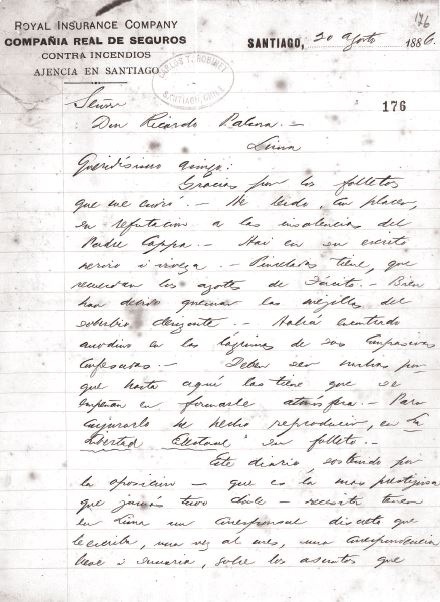 176
ROYAL INSURANCE COMPANY
COMPAÑIA REAL DE SEGUROS
CONTRA INCENDIOS
AJENCIA EN SANTIAGO
SANTIAGO, 20 agosto 1886.
CARLOS T. ROBINET
SANTIAGO, CHILE
176
Señor
Don Ricardo Palma.—
Lima
Queridísimo amigo:
Gracias por los folletos
que me envió.— He leido, con placer,
su refutacion a las insolencias del
Padre Cappa.— Hai en su escrito
nervio i viveza.— Pinceladas tiene, que
recuerdan los azotes de Tácito.— Bien
han debido quemar las mejillas del
.— Habia encontrado
en las lágrimas de sus
confesadas.— Deben ser muchas por
que hasta aquí las tiene que se
empeñan en formarle atmósfera.— Para
conjurarlo he hecho reproducir, en "La
Libertad Electoral" su folleto.—
Este diario, sostenido por
la oposicion — que es la mas prestijiosa
que jamás tuvo Chile — necesita tener
en Lima un corresponsal discreto que
le escriba, una vez al mes, una correspondencia
breve i sumaria, sobre los asuntos que